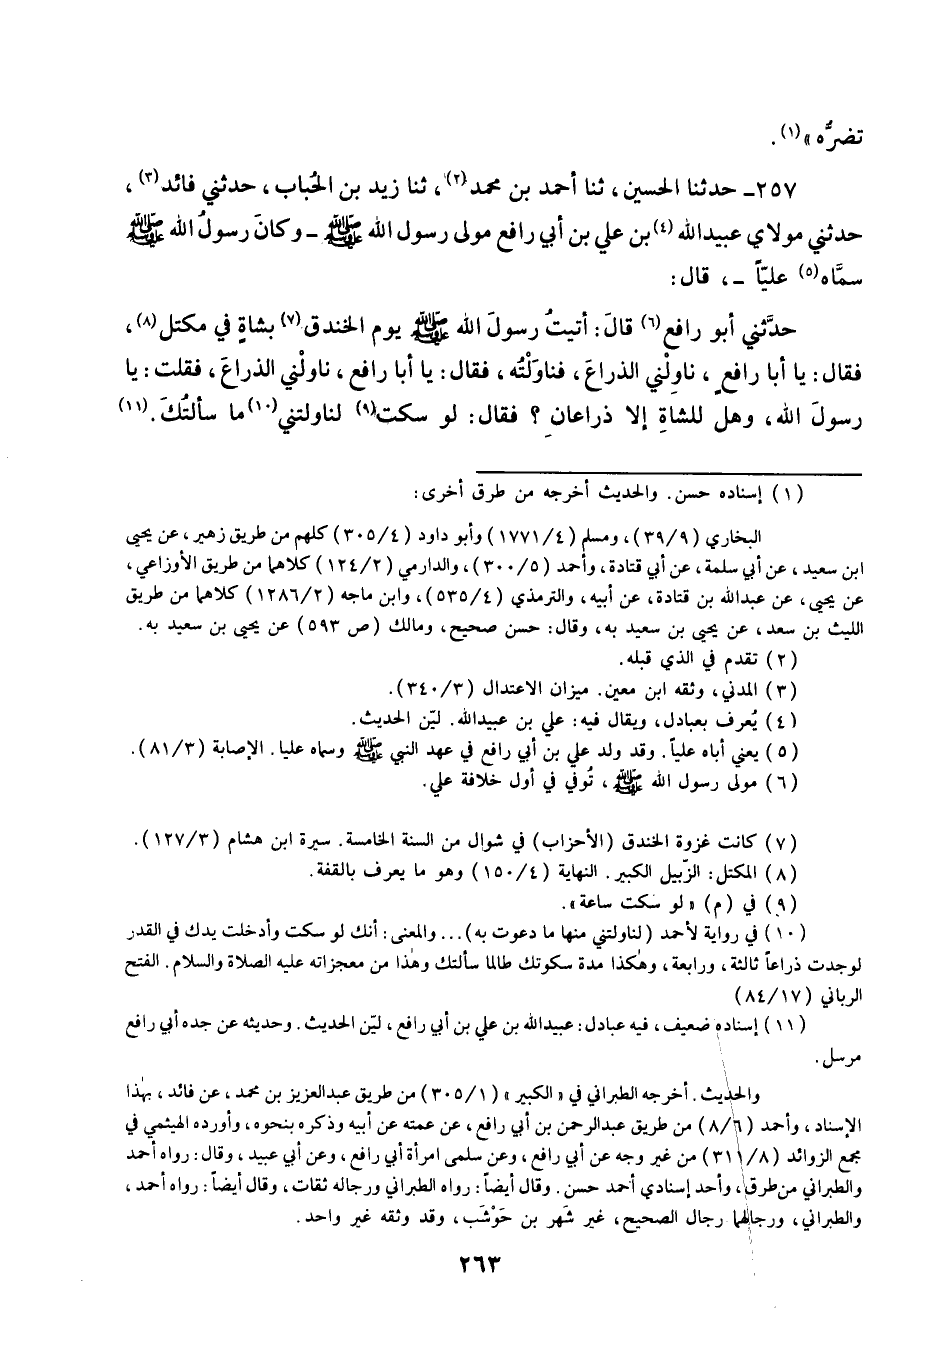 تضرُّه »(١) .
٢٥٧ـ حدثنا الحسين ، ثنا أحمد بن محمد(٢) ، ثنا زيد بن الحُباب ، حدثني فائد(٣) ،
حدثني مولاي عبيدالله (٤) بن علي بن أبي رافع مولى رسول الله ﷺ ـ وكانَ رسولُ الله ﷺ
سمَّاه(٥) عليّاً ـ ، قال :
حدَّثني أبو رافع(٦) قالَ : أتيتُ رسولَ الله ﷺ يوم الخندق(٧) بشاةٍ في مكتل(٨) ،
فقال : يا أبا رافعٍ ، ناوِلْني الذراعَ ، فناوَلْتُه ، فقال : يا أبا رافع ، ناولْني الذراعَ ، فقلت : يا
رسولَ الله ، وهل للشاةِ إلا ذراعانِ ؟ فقال : لو سكت(٩) لناولتني(١٠) ما سألتُكَ .(١١)
(١) إسناده حسن . والحديث أخرجه من طرق أخرى :
البخاري (٣٩/٩) ، ومسلم (١٧٧١/٤) وأبو داود (٣٠٥/٤) كلهم من طريق زهير ، عن يحيى
ابن سعيد ، عن أبي سلمة ، عن أبي قتادة ، وأحمد (٣٠٠/٥) ، والدارمي (١٢٤/٢) كلاهما من طريق الأوزاعي ،
عن يحيى ، عن عبدالله بن قتادة ، عن أبيه ، والترمذي (٥٣٥/٤) ، وابن ماجه (١٢٨٦/٢) كلاهما من طريق
الليث بن سعد ، عن يحيى بن سعيد به ، وقال : حسن صحيح ، ومالك (ص ٥٩٣) عن يحيى بن سعيد به .
(٢) تقدم في الذي قبله .
(٣) المدني ، وثقه ابن معين . ميزان الاعتدال (٣٤٠/٣) .
(٤) يُعرف بعبادل ، ويقال فيه : علي بن عبيدالله . ليّن الحديث .
(٥) يعني أباه علياً . وقد ولد علي بن أبي رافع في عهد النبي ﷺ وسماه عليا . الإصابة (٨١/٣) .
(٦) مولى رسول الله ﷺ ، تُوفي في أول خلافة علي .
(٧) كانت غزوة الخندق (الأحزاب) في شوال من السنة الخامسة . سيرة ابن هشام (١٢٧/٣) .
(٨) المكتل : الزّبيل الكبير . النهاية (١٥٠/٤) وهو ما يعرف بالقفة .
(٩) في (م) « لو سكت ساعة » .
(١٠) في رواية لأحمد (لناولتني منها ما دعوت به) ... والمعنى : أنك لو سكت وأدخلت يدك في القدر
لوجدت ذراعاً ثالثة ، ورابعة ، وهٰكذا مدة سكوتك طالما سألتك وهٰذا من معجزاته عليه الصلاة والسلام . الفتح
الرباني (٨٤/١٧)
(١١) إسناده ضعيف ، فيه عبادل : عبيدالله بن علي بن أبي رافع ، ليّن الحديث . وحديثه عن جده أبي رافع
مرسل .
والحديث . أخرجه الطبراني في « الكبير » (٣٠٥/١) من طريق عبدالعزيز بن محمد ، عن فائد ، بهٰذا
الإسناد ، وأحمد (٨/٦) من طريق عبدالرحمن بن أبي رافع ، عن عمته عن أبيه وذكره بنحوه ، وأورده الهيثمي في
مجمع الزوائد (٣١١/٨) من غير وجه عن أبي رافع ، وعن سلمى امرأة أبي رافع ، وعن أبي عبيد ، وقال : رواه أحمد
والطبراني من طرق ، وأحد إسنادي أحمد حسن . وقال أيضاً : رواه الطبراني ورجاله ثقات ، وقال أيضاً : رواه أحمد ،
والطبراني ، ورجالهما رجال الصحيح ، غير شهر بن حَوْشَب ، وقد وثقه غير واحد .
٢٦٣